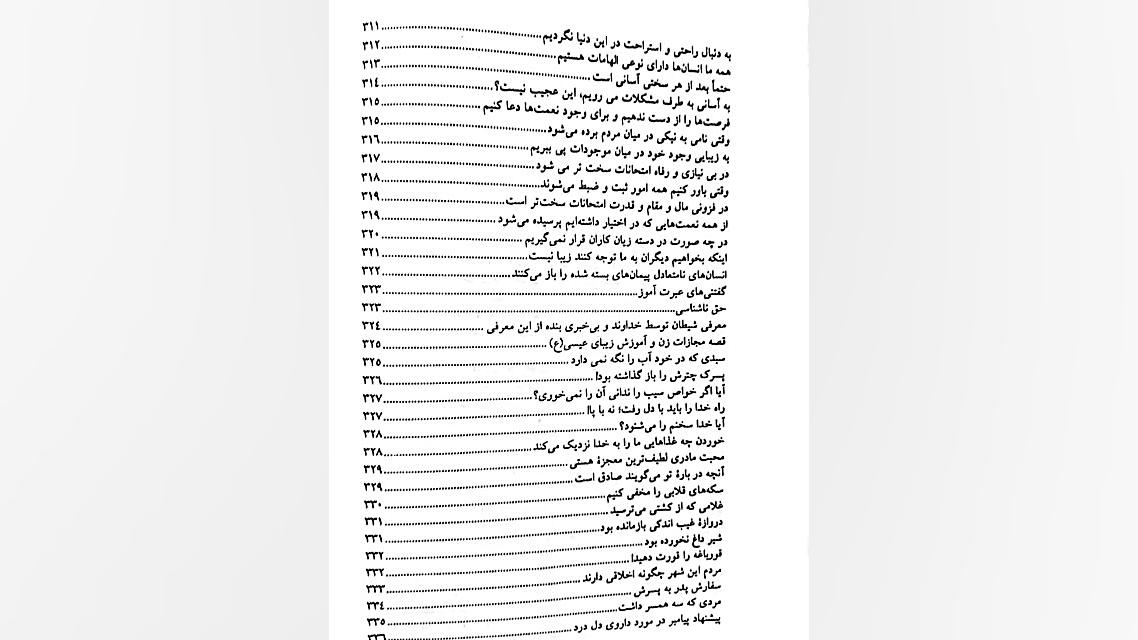 به دنبال راحتی و استراحت در این دنیا نگردیم ........ ۳۱۱
همه ما انسان‌ها دارای نوعی الهامات هستیم ........ ۳۱۲
حتماً بعد از هر سختی آسانی است ........ ۳۱۳
به آسانی به طرف مشکلات می رویم، این عجیب نیست؟ ........ ۳۱٤
فرصت‌ها را از دست ندهیم و برای وجود نعمت‌ها دعا کنیم ........ ۳۱٥
وقتی نامی به نیکی در میان مردم برده می‌شود ........ ۳۱٥
به زیبایی وجود خود در میان موجودات پی ببریم ........ ۳۱٦
در بی نیازی و رفاه امتحانات سخت تر می شود ........ ۳۱۷
وقتی باور کنیم همه امور ثبت و ضبط می‌شوند ........ ۳۱۸
در فزونی مال و مقام و قدرت امتحانات سخت‌تر است ........ ۳۱۹
از همه نعمت‌هایی که در اختیار داشته‌ایم پرسیده می‌شود ........ ۳۱۹
در چه صورت در دسته زیان کاران قرار نمی‌گیریم ........ ۳۲۰
اینکه بخواهیم دیگران به ما توجه کنند زیبا نیست ........ ۳۲۱
انسان‌های نامتعادل پیمان‌های بسته شده را باز می‌کنند ........ ۳۲۲
گفتنی‌های عبرت آموز ........ ۳۲۳
حق ناشناسی ........ ۳۲۳
معرفی شیطان توسط خداوند و بی‌خبری بنده از این معرفی ........ ۳۲٤
قصه مجازات زن و آموزش زیبای عیسی(ع) ........ ۳۲٥
سبدی که در خود آب را نگه نمی دارد ........ ۳۲٥
پسرک چترش را باز گذاشته بود! ........ ۳۲٦
آیا اگر خواص سیب را ندانی آن را نمی‌خوری؟ ........ ۳۲۷
راه خدا را باید با دل رفت؛ نه با پا! ........ ۳۲۷
آیا خدا سخنم را می‌شنود؟ ........ ۳۲۸
خوردن چه غذاهایی ما را به خدا نزدیک می‌کند ........ ۳۲۸
محبت مادری لطیف‌ترین معجزهٔ هستی ........ ۳۲۹
آنچه در بارهٔ تو می‌گویند صادق است ........ ۳۲۹
سکه‌های قلابی را مخفی کنیم ........ ۳۳۰
غلامی که از کشتی می‌ترسید ........ ۳۳۱
دروازهٔ غیب اندکی بازمانده بود ........ ۳۳۱
شیر داغ نخورده بود ........ ۳۳۲
قورباغه را قورت دهید! ........ ۳۳۲
مردم این شهر چگونه اخلاقی دارند ........ ۳۳۳
سفارش پدر به پسرش ........ ۳۳٤
مردی که سه همسر داشت ........ ۳۳٥
پیشنهاد پیامبر در مورد داروی دل درد ........ ۳۳٦